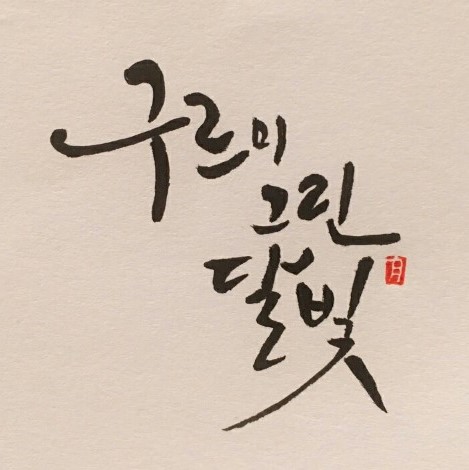 구르미
그린
달빛
月